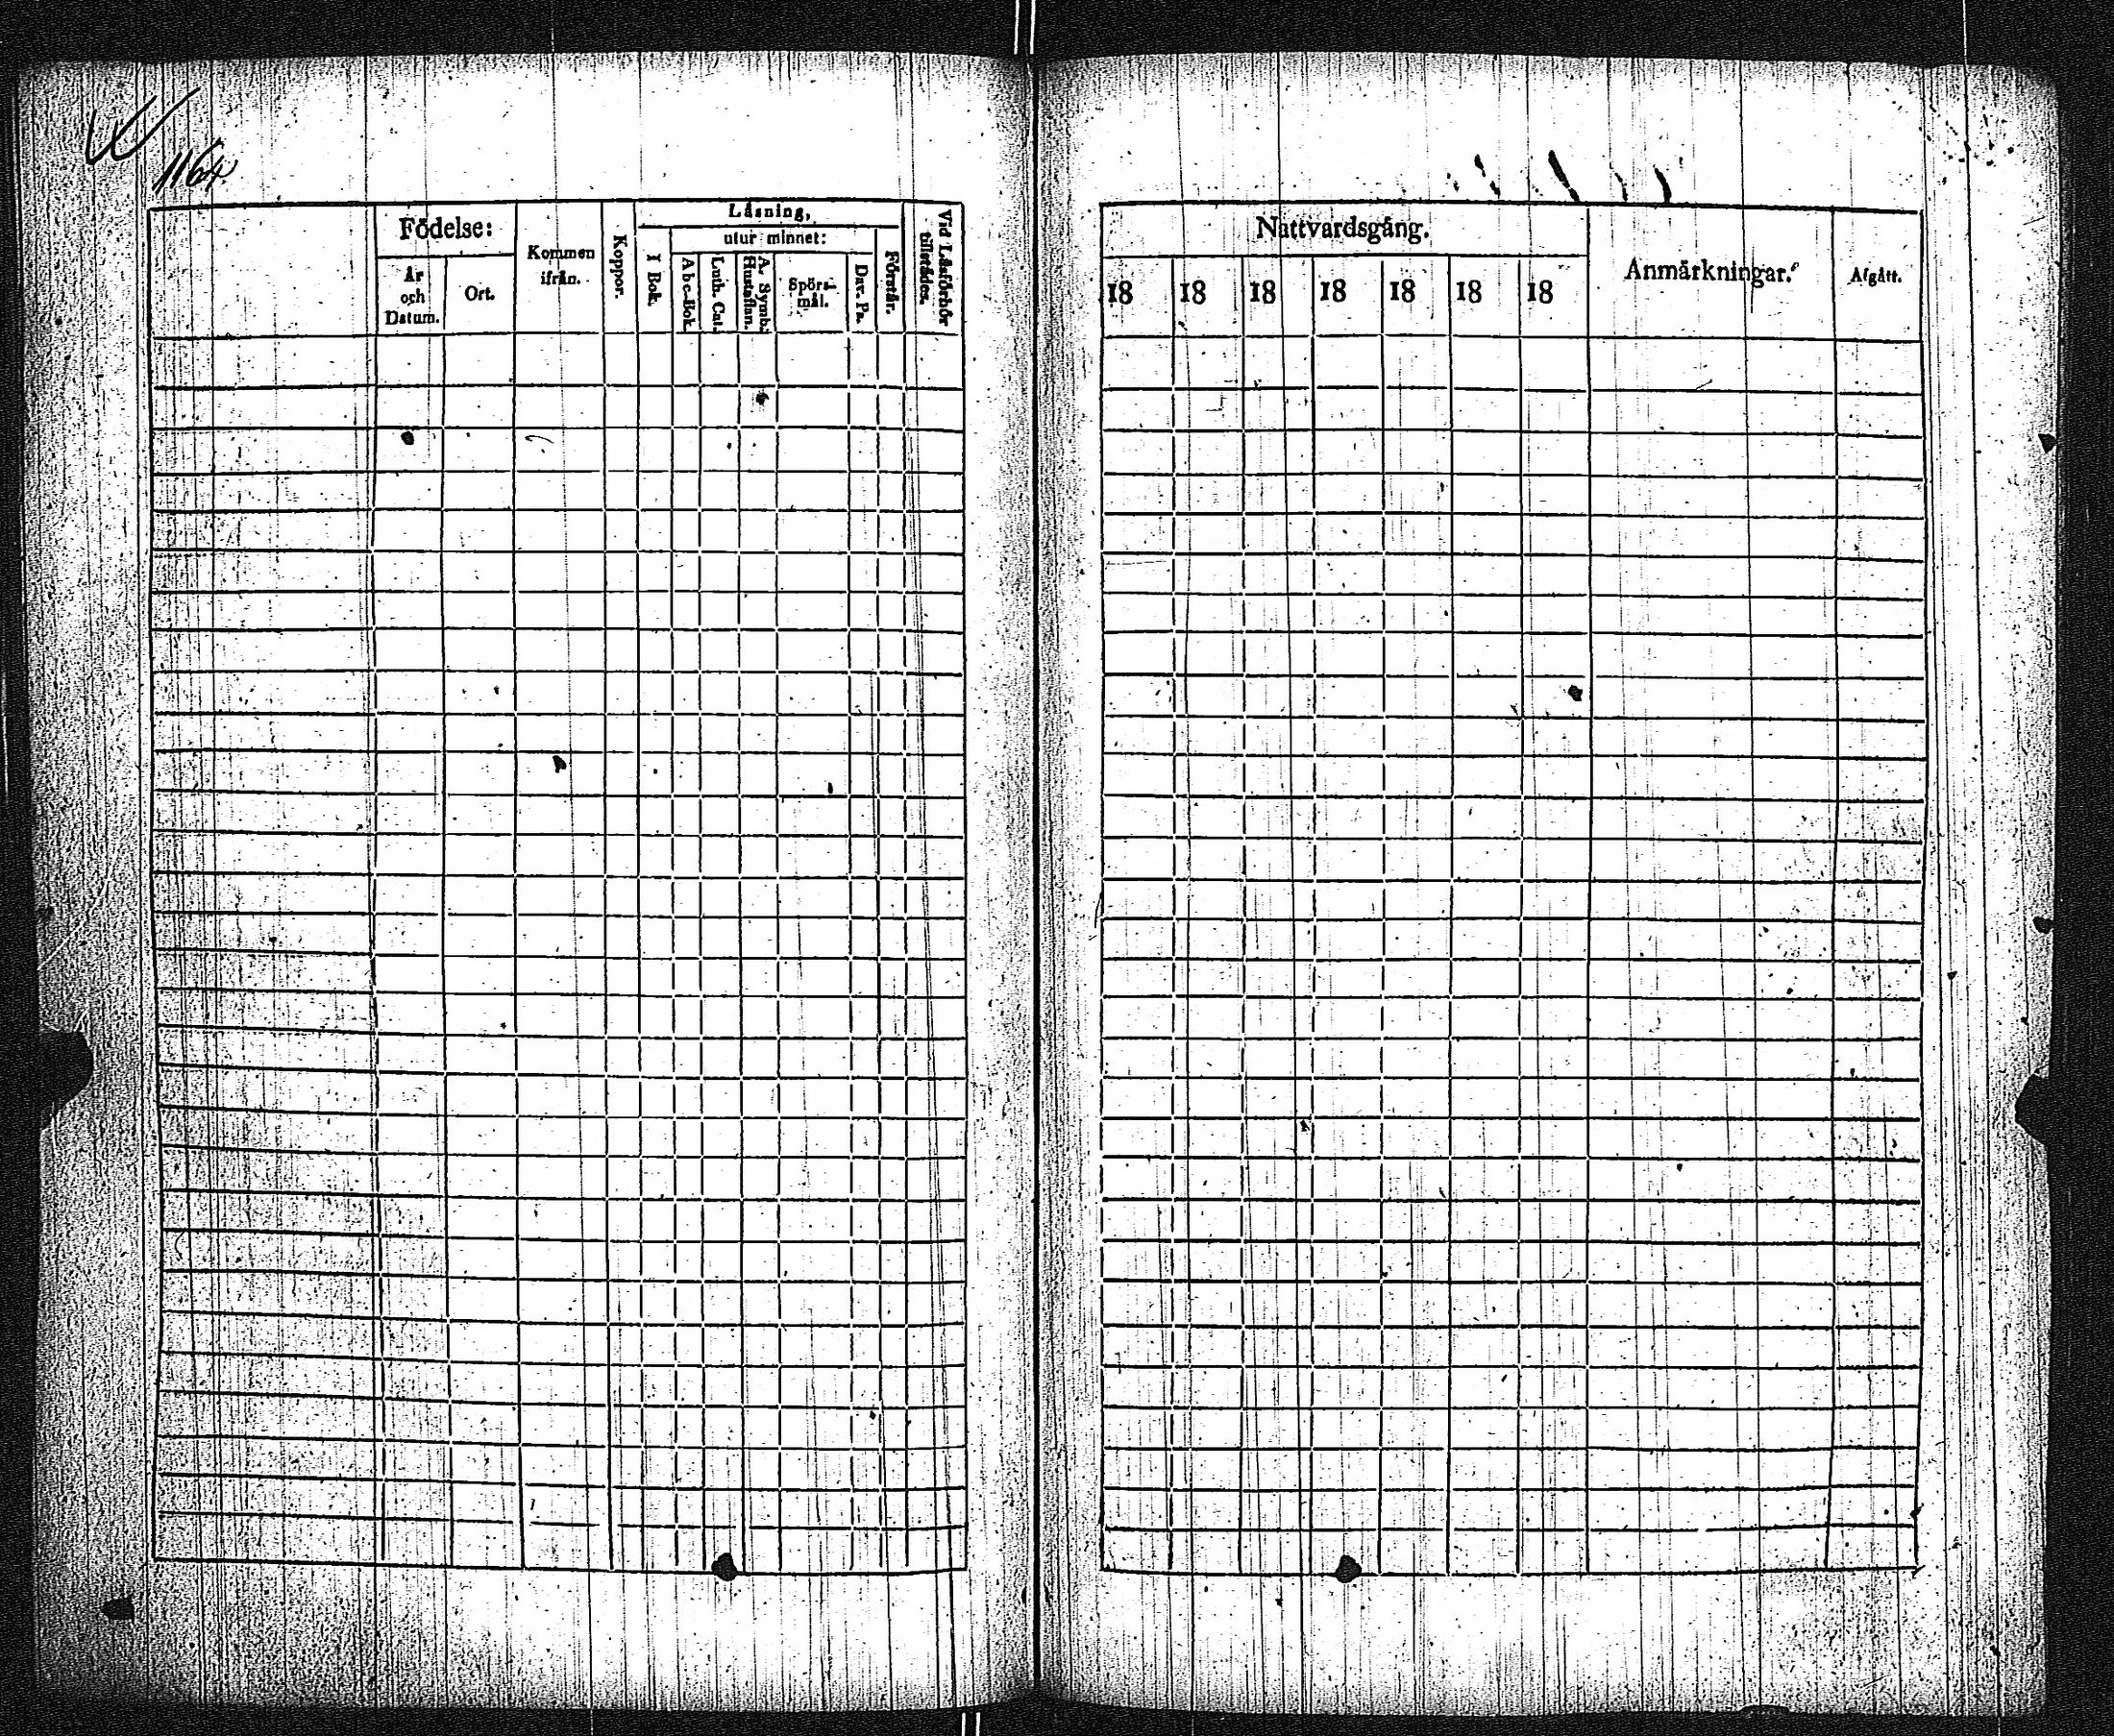 1164.
Födelse:
År
och
Datum.
Ort.
Kommen
ifrån.
Koppor.
Läsning,
utur minnet:
I Bok.
Abc-Bok.
Luth. Cat.
A. Symb.
Hustaflan.
Spörs-
mål.
Dav. Ps.
Förstår.
Vid Läsförhör
tillstädes.
Nattvardsgång.
18 18 18 18 18 18 18
Anmärkningar.
Afgått.